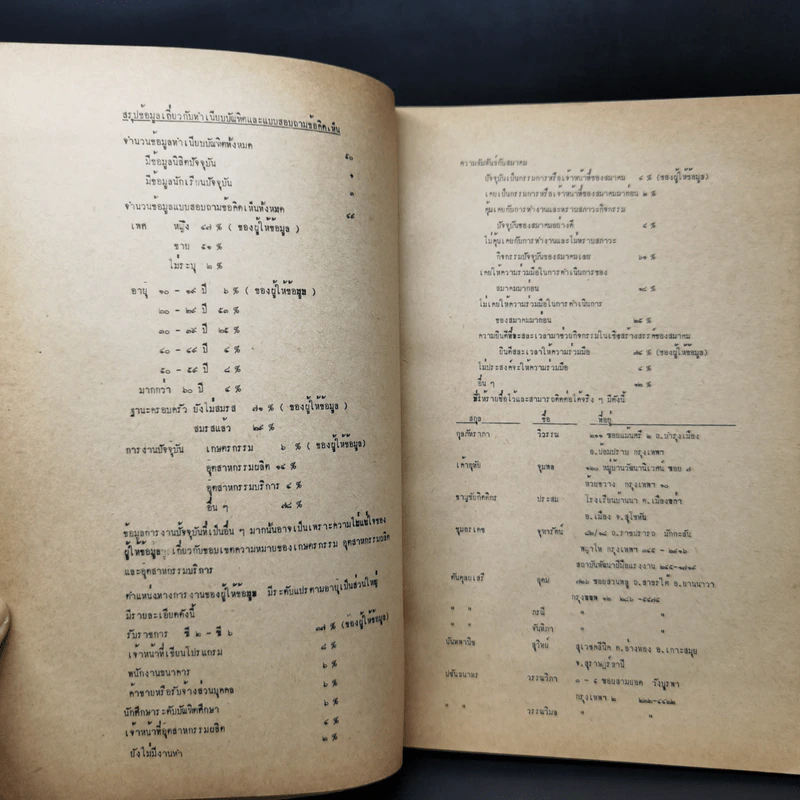 สรุปข้อมูลเกี่ยวกับทำเนียบบัณฑิตและแบบสอบถามข้อคิดเห็น
จำนวนข้อมูลทำเนียบบัณฑิตทั้งหมด ๕๐
มีข้อมูลนิสิตปัจจุบัน ๑
มีข้อมูลนักเรียนปัจจุบัน
จำนวนข้อมูลแบบสอบถามข้อคิดเห็นทั้งหมด ๔๙
เพศ หญิง ๔๗ % ( ของผู้ให้ข้อมูล )
ชาย ๕๑ %
ไม่ระบุ ๒ %
อายุ ๑๐ - ๑๙ ปี ๖ % ( ของผู้ให้ข้อมูล )
๒๐ - ๒๙ ปี ๕๓ %
๓๐ - ๓๙ ปี ๒๕ %
๔๐ - ๔๙ ปี ๔ %
๕๐ - ๕๙ ปี ๘ %
มากกว่า ๖๐ ปี ๔ %
ฐานะครอบครัว ยังไม่สมรส ๗๑ % ( ของผู้ให้ข้อมูล )
สมรสแล้ว ๒๙ %
การงานปัจจุบัน เกษตรกรรม ๖ % (ของผู้ให้ข้อมูล)
อุตสาหกรรมผลิต ๑๔ %
อุตสาหกรรมบริการ ๔ %
อื่น ๆ ๗๘ %
ข้อมูลการงานปัจจุบันที่เป็นอื่น ๆ มากนั้นอาจเป็นเพราะความไม่แน่ใจของ
ผู้ให้ข้อมูล เกี่ยวกับขอบเขตความหมายของเกษตรกรรม อุตสาหกรรมผลิต
และอุตสาหกรรมบริการ
ตำแหน่งทางการงานของผู้ให้ข้อมูล มีระดับแปรตามอายุเป็นส่วนใหญ่
มีรายละเอียดดังนี้
รับราชการ ซี ๒ - ซี ๖ ๓๗ % (ของผู้ให้ข้อมูล)
เจ้าหน้าที่เขียนโปรแกรม ๘ %
พนักงานธนาคาร ๖ %
ค้าขายหรือรับจ้างส่วนบุคคล ๖ %
นักศึกษาระดับบัณฑิตศึกษา ๖ %
เจ้าหน้าที่อุตสาหกรรมผลิต ๔ %
ยังไม่มีงานทำ ๒ %
ความสัมพันธ์กับสมาคม
ปัจจุบันเป็นกรรมการหรือเจ้าหน้าที่ของสมาคม ๔ % (ของผู้ให้ข้อมูล)
เคยเป็นกรรมการหรือเจ้าหน้าที่ของสมาคมมาก่อน ๒ %
คุ้นเคยกับการทำงานและทราบสภาวะกิจกรรม
ปัจจุบันของสมาคมอย่างดี ๔ %
ไม่คุ้นเคยกับการทำงานและไม่ทราบสภาวะ
กิจกรรมปัจจุบันของสมาคมเลย ๖๑ %
เคยให้ความร่วมมือในการดำเนินการของ
สมาคมมาก่อน ๑๘ %
ไม่เคยให้ความร่วมมือในการดำเนินการ
ของสมาคมมาก่อน ๒๕ %
ความยินดีที่จะสละเวลามาช่วยกิจกรรมในเชิงสร้างสรรค์ของสมาคม
ยินดีสละเวลาให้ความร่วมมือ ๗๘ % (ของผู้ให้ข้อมูล)
ไม่ประสงค์จะให้ความร่วมมือ ๔ %
อื่น ๆ ๒๒ %
ที่ให้รายชื่อไว้และสามารถติดต่อได้จริง ๆ มีดังนี้
สกุล ชื่อ ที่อยู่
กุลภัทราภา วิวรรณ ๒๑๑ ซอยแม้นศรี ๒ ถ.บำรุงเมือง
อ.ป้อมปราบ กรุงเทพฯ
เค้าอุทัย จุมพล ๑๒๐ หมู่บ้านวัฒนานิเวศน์ ซอย ๗
ห้วยขวาง กรุงเทพฯ ๑๐
ชาญชัยกิตติกร ประสม โรงเรียนบ้านนา ต.เมืองเก่า
อ.เมือง จ.สุโขทัย
ชุมอรเดช จุฑารัตน์ ๘๒/๑๘ ถ.ราชปรารภ มักกะสัน
พญาไท กรุงเทพฯ
สถาบันพัฒนาฝีมือแรงงาน
ตันศุลยเสรี อุดม ๗๒๖ ซอยสวนพลู ถ.สาธรใต้ อ.ยานนาวา
กรุงเทพฯ ๑๒ ๒๘๖ -๕๔๗๕
" " กรณี "
" " จันทิภา "
บัณฑพานิช สุวิทย์ สุเวชคลีนิค ต.อ่างทอง อ.เกาะสมุย
จ.สุราษฎร์ธานี
ปชันธนาทร วรรณวิภา ๓ - ๕ ซอยสามยอด วังบูรพา
กรุงเทพฯ ๒ ๒๒๒-๔๔๒๒
" " วรรณวิมล " "